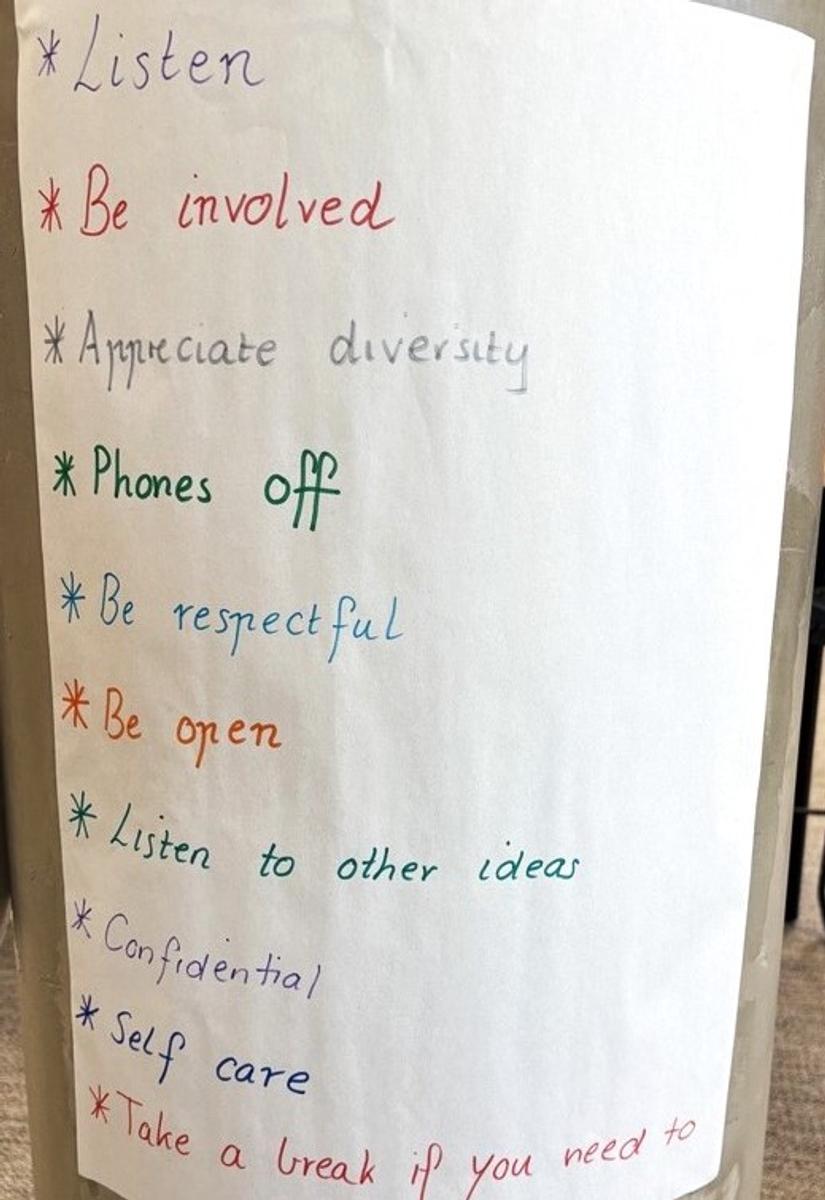 * Listen
* Be involved
* Appreciate diversity
* Phones off
* Be respectful
* Be open
* Listen to other ideas
* Confidential
* Self care
* Take a break if you need to